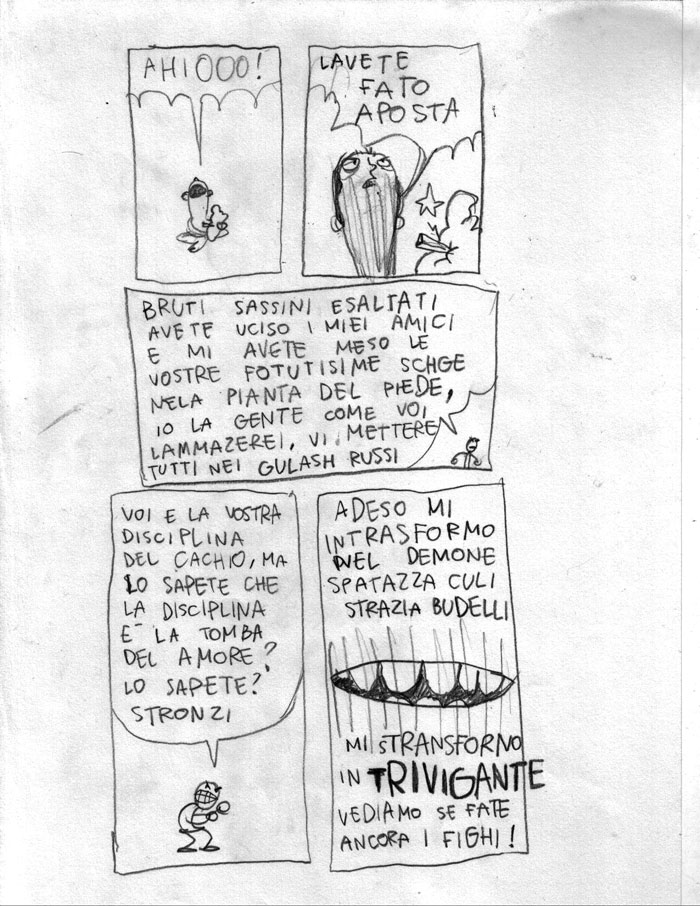 AHIOOO!
LAVETE
FATO
APOSTA
BRUTI SASSINI ESALTATI
AVETE UCISO I MIEI AMICI
E MI AVETE MESO LE
VOSTRE FOTUTISIME SCHGE
NELA PIANTA DEL PIEDE,
IO LA GENTE COME VOI
LAMMAZEREI, VI METTEREI
TUTTI NEI GULASH RUSSI
VOI E LA VOSTRA
DISCIPLINA
DEL CACHIO, MA
LO SAPETE CHE
LA DISCIPLINA
E' LA TOMBA
DEL AMORE?
LO SAPETE?
STRONZI
ADESO MI
INTRASFORMO
NEL DEMONE
SPATAZZA CULI
STRAZIA BUDELLI
MI STRANSFORNO
IN TRIVIGANTE
VEDIAMO SE FATE
ANCORA I FIGHI!